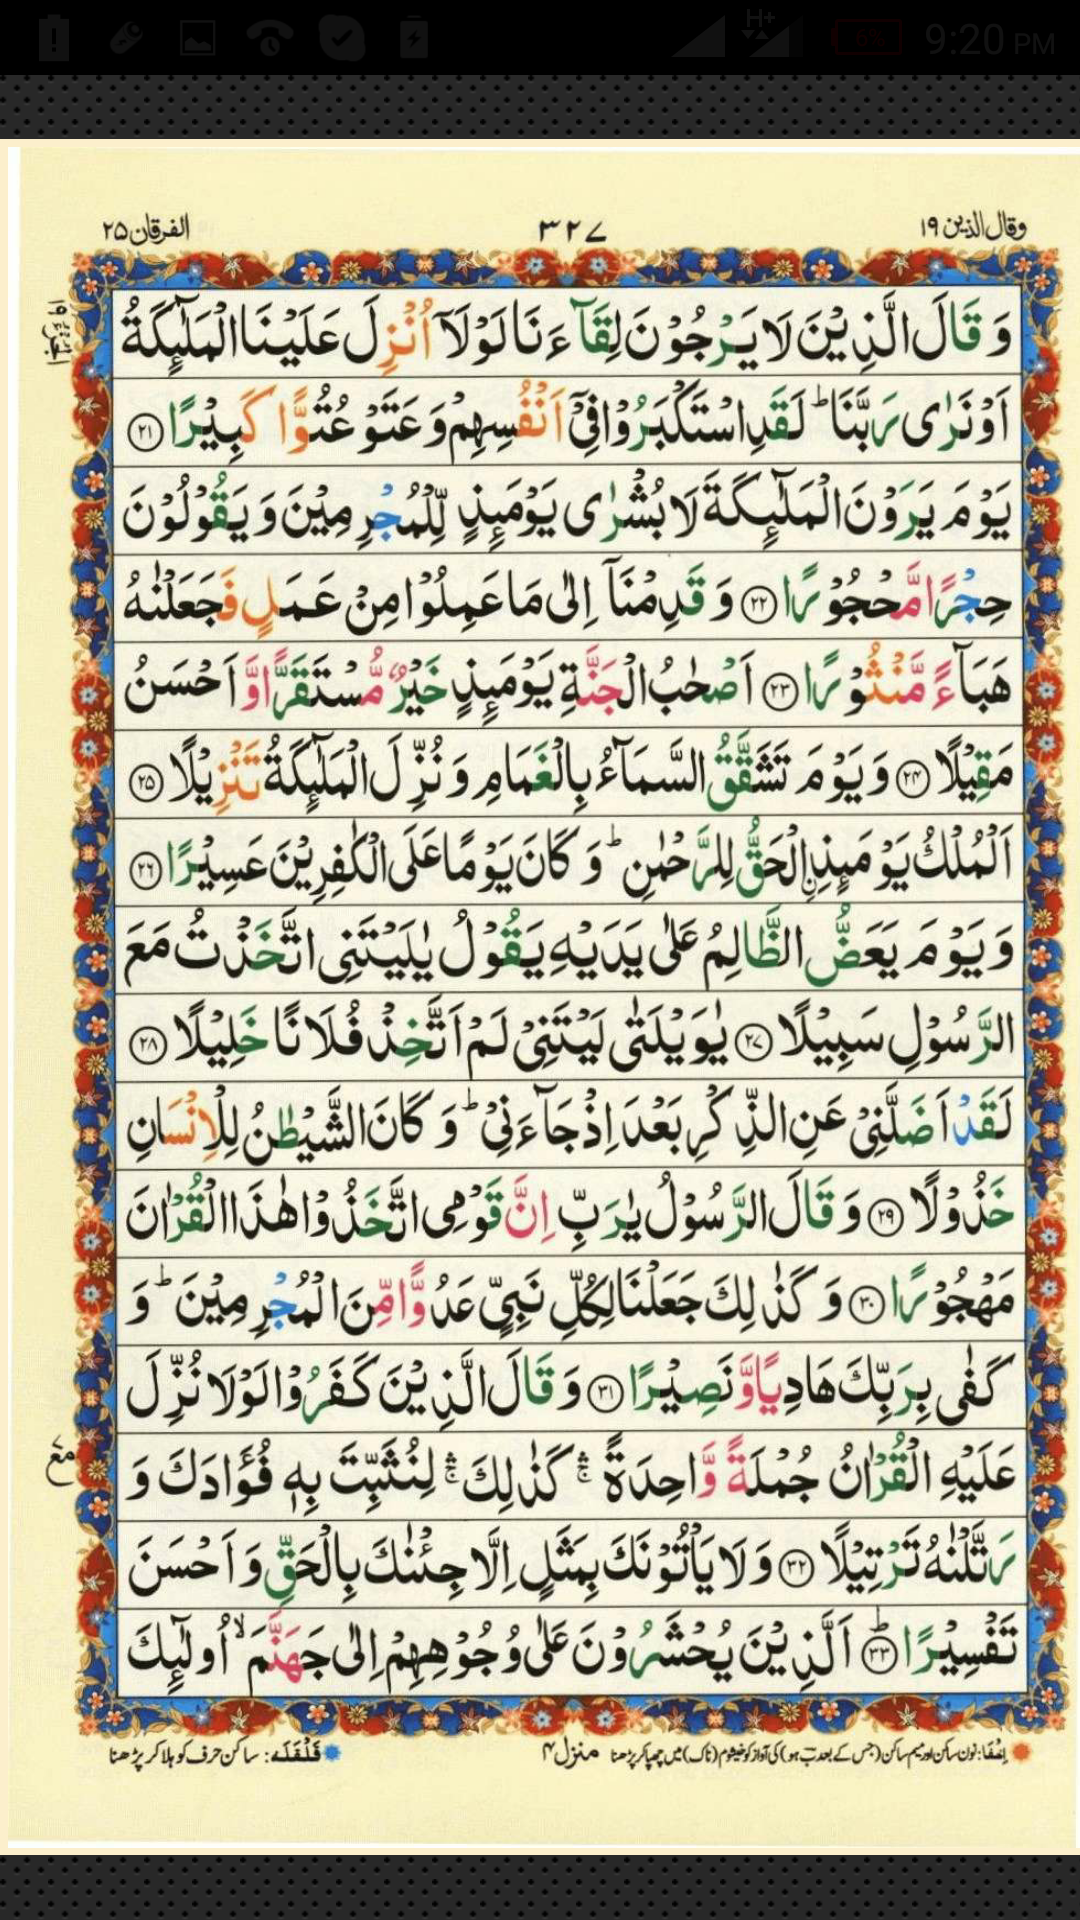 H+
6%
9:20 PM
وقال الذین ۱۹
۳۲۷
الفرقان ۲۵
وَ قَالَ الَّذِیْنَ لَا یَرْجُوْنَ لِقَآءَنَا لَوْلَاۤ اُنْزِلَ عَلَیْنَا الْمَلٰٓىِٕكَةُ
اَوْ نَرٰی رَبَّنَا ؕ لَقَدِ اسْتَكْبَرُوْا فِیْۤ اَنْفُسِهِمْ وَ عَتَوْ عُتُوًّا كَبِیْرًا ۟﴿۲۱﴾
یَوْمَ یَرَوْنَ الْمَلٰٓىِٕكَةَ لَا بُشْرٰی یَوْمَىِٕذٍ لِّلْمُجْرِمِیْنَ وَ یَقُوْلُوْنَ
حِجْرًا مَّحْجُوْرًا ﴿۲۲﴾ وَ قَدِمْنَاۤ اِلٰی مَا عَمِلُوْا مِنْ عَمَلٍ فَجَعَلْنٰهُ
هَبَآءً مَّنْثُوْرًا ﴿۲۳﴾ اَصْحٰبُ الْجَنَّةِ یَوْمَىِٕذٍ خَیْرٌ مُّسْتَقَرًّا وَّ اَحْسَنُ
مَقِیْلًا ﴿۲۴﴾ وَ یَوْمَ تَشَقَّقُ السَّمَآءُ بِالْغَمَامِ وَ نُزِّلَ الْمَلٰٓىِٕكَةُ تَنْزِیْلًا ﴿۲۵﴾
اَلْمُلْكُ یَوْمَىِٕذِ ِ۟الْحَقُّ لِلرَّحْمٰنِ ؕ وَ كَانَ یَوْمًا عَلَی الْكٰفِرِیْنَ عَسِیْرًا ﴿۲۶﴾
وَ یَوْمَ یَعَضُّ الظَّالِمُ عَلٰی یَدَیْهِ یَقُوْلُ یٰلَیْتَنِی اتَّخَذْتُ مَعَ
الرَّسُوْلِ سَبِیْلًا ﴿۲۷﴾ یٰوَیْلَتٰی لَیْتَنِیْ لَمْ اَتَّخِذْ فُلَانًا خَلِیْلًا ﴿۲۸﴾
لَقَدْ اَضَلَّنِیْ عَنِ الذِّكْرِ بَعْدَ اِذْ جَآءَنِیْ ؕ وَ كَانَ الشَّیْطٰنُ لِلْاِنْسَانِ
خَذُوْلًا ﴿۲۹﴾ وَ قَالَ الرَّسُوْلُ یٰرَبِّ اِنَّ قَوْمِی اتَّخَذُوْا هٰذَا الْقُرْاٰنَ
مَهْجُوْرًا ﴿۳۰﴾ وَ كَذٰلِكَ جَعَلْنَا لِكُلِّ نَبِیٍّ عَدُوًّا مِّنَ الْمُجْرِمِیْنَ ؕ وَ
كَفٰی بِرَبِّكَ هَادِیًا وَّ نَصِیْرًا ﴿۳۱﴾ وَ قَالَ الَّذِیْنَ كَفَرُوْا لَوْلَا نُزِّلَ
عَلَیْهِ الْقُرْاٰنُ جُمْلَةً وَّاحِدَةً ۛۚ كَذٰلِكَ ۛۚ لِنُثَبِّتَ بِهٖ فُؤَادَكَ وَ
رَتَّلْنٰهُ تَرْتِیْلًا ﴿۳۲﴾ وَ لَا یَاْتُوْنَكَ بِمَثَلٍ اِلَّا جِئْنٰكَ بِالْحَقِّ وَ اَحْسَنَ
تَفْسِیْرًا ؕ﴿۳۳﴾ اَلَّذِیْنَ یُحْشَرُوْنَ عَلٰی وُجُوْهِهِمْ اِلٰی جَهَنَّمَ ۙ اُولٰٓىِٕكَ
الجزء ۱۹
مع
اِخفَا: نون ساکن اور میم ساکن (جس کے بعد ب ہو) کی آواز کو خیشوم (ناک) میں چھپا کر پڑھنا
منزل ۴
قَلْقَلَہ: ساکن حرف کو ہلا کر پڑھنا